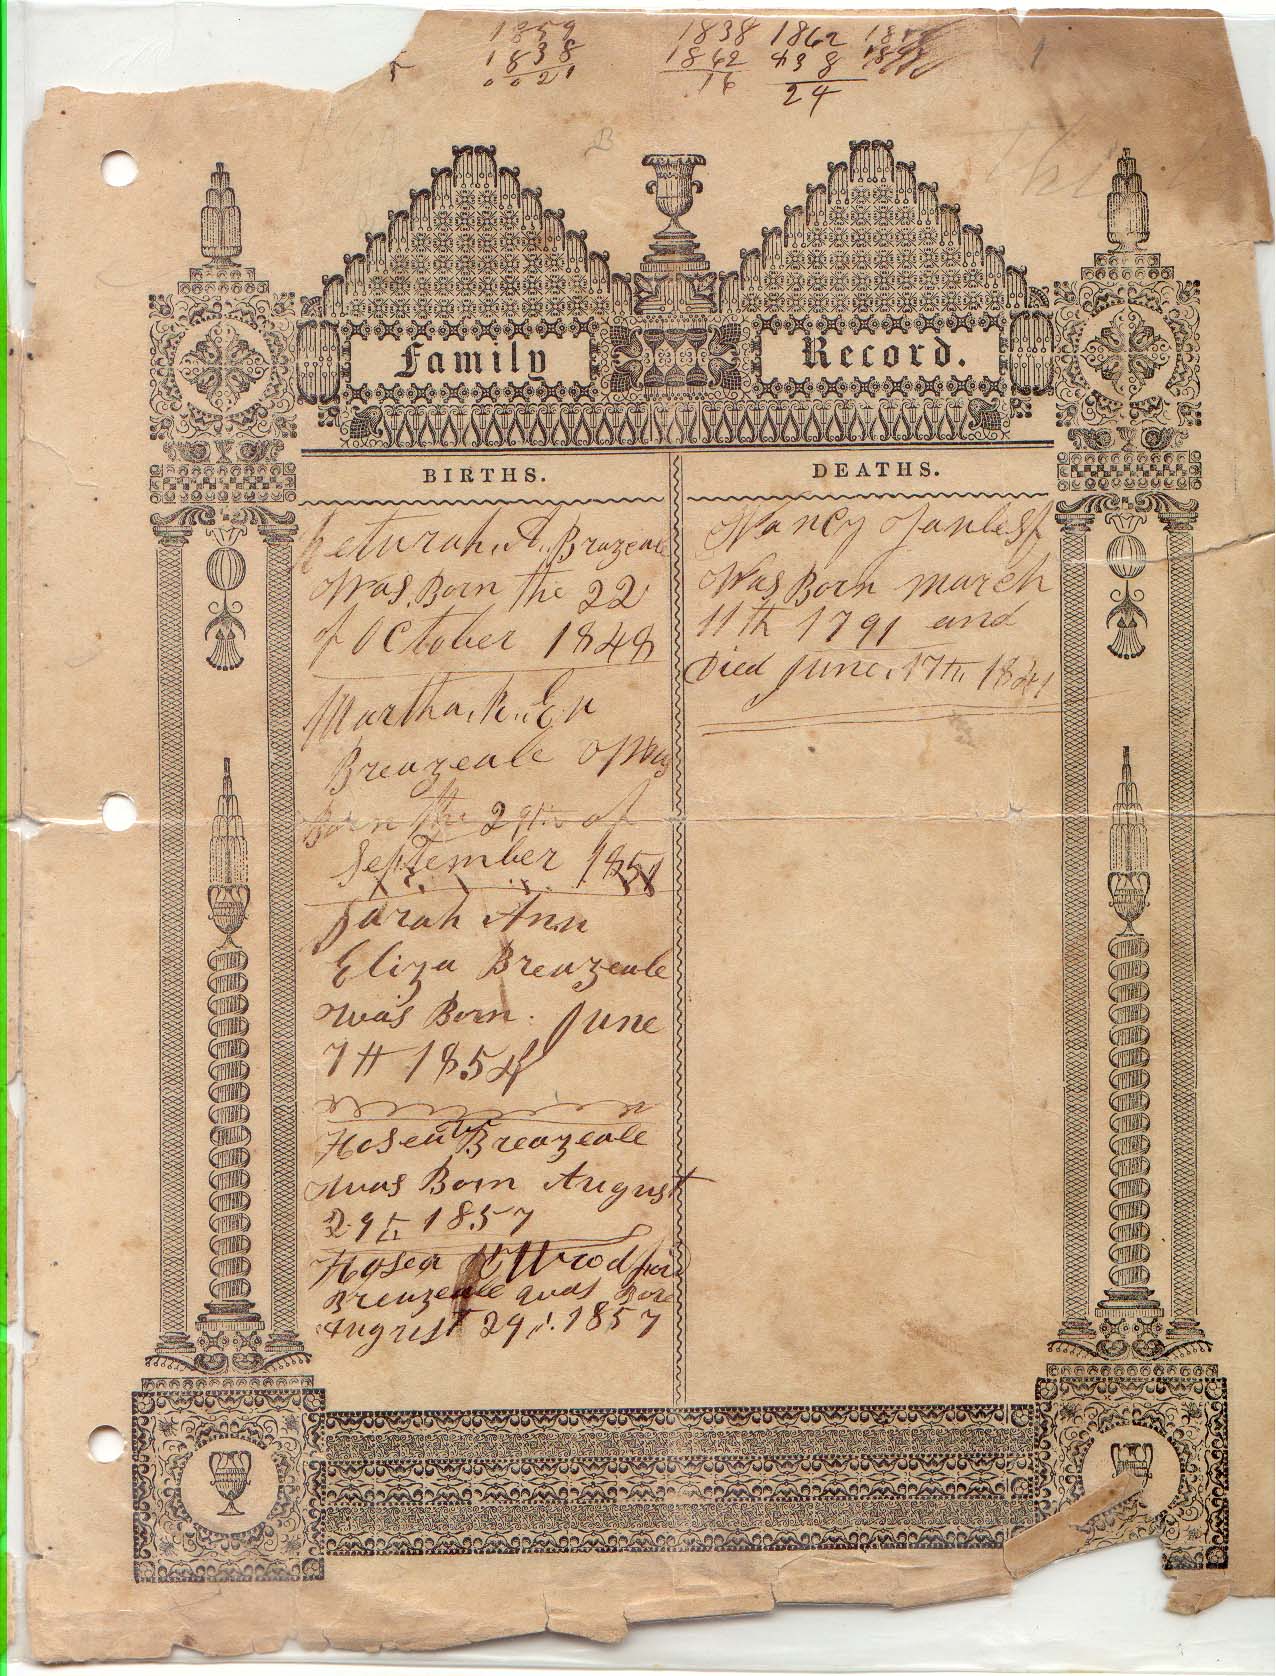 1859
1838
0021
1838
1862
16
1862
38
24
Family Record.
BIRTHS.
Keturah. A. Brazeale
Was. Born the 22
of October 1848
Martha. R. E
Breazeale Was
Born the 29th of
September 1851
Sarah Ann
Eliza Breazeale
was Born. June
7th 1854
Hosea Breazeale
was Born August
29th 1857
Hosea
Breazeale was Born
August 29th. 1857
DEATHS.
Nancy
Was Born march
11th 1791 and
Died June. 17th. 1841